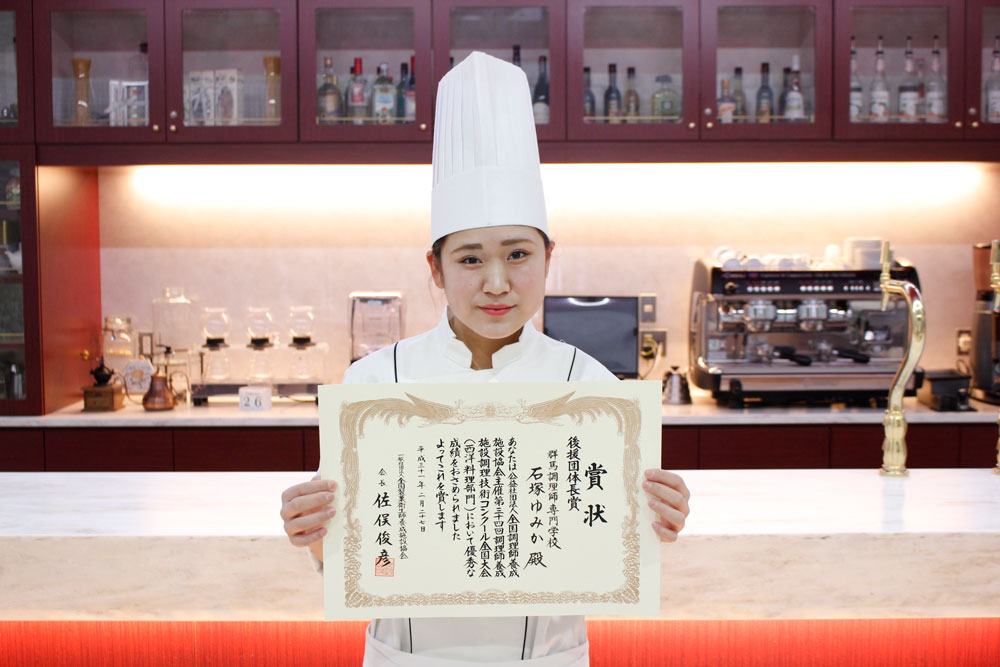 賞状
後援団体長賞
群馬調理師専門学校
石塚ゆみか殿
あなたは公益社団法人全国調理師養成
施設協会主催第三十四回調理師養成
施設調理技術コンクール全国大会
(西洋料理部門)において優秀な
成績をおさめられました
よってこれを賞します
平成三十一年二月二十七日
一般社団法人全国製菓衛生師養成施設協会
会長 佐俣俊彦
26